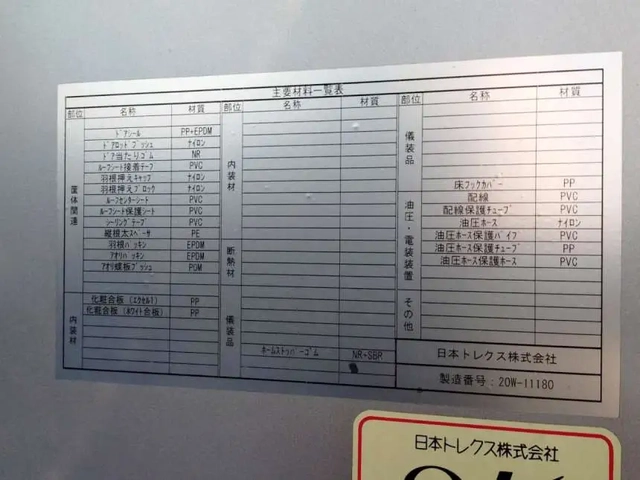 主要材料一覧表
部位 名称 材質 部位 名称 材質 部位 名称 材質
筐体関連
ﾄﾞｱｼｰﾙ PP+EPDM
ﾄﾞｱﾛｯﾄﾞﾌﾞｯｼｭ ﾅｲﾛﾝ
ﾄﾞｱ当たりｺﾞﾑ NR
ﾙｰﾌｼｰﾄ接着ﾃｰﾌﾟ PVC
羽根押えｷｬｯﾌﾟ ﾅｲﾛﾝ
羽根押えﾌﾞﾛｯｸ ﾅｲﾛﾝ
ﾙｰﾌｾﾝﾀｰｼｰﾄ PVC
ﾙｰﾌｼｰﾄ保護ｼｰﾄ PVC
ｼｰﾘﾝｸﾞﾃｰﾌﾟ PVC
縦根太ｽﾍﾟｰｻ PE
羽根ﾊﾟｯｷﾝ EPDM
ｱｵﾘﾊﾟｯｷﾝ EPDM
ｱｵﾘ蝶板ﾌﾞｯｼｭ POM
内装材
化粧合板 (ｴｸｾﾙ1) PP
化粧合板 (ﾎﾜｲﾄ合板) PP
内装材
断熱材
儀装品
ﾎｰﾑｽﾄｯﾊﾟｰｺﾞﾑ NR+SBR
儀装品
床ﾌｯｸｶﾊﾞｰ PP
油圧・電装装置
配線 PVC
配線保護ﾁｭｰﾌﾞ PVC
油圧ﾎｰｽ ﾅｲﾛﾝ
油圧ﾎｰｽ保護ﾊﾟｲﾌﾟ PVC
油圧ﾎｰｽ保護ﾁｭｰﾌﾞ PP
油圧ﾎｰｽ保護ﾎｰｽ PVC
その他
日本トレクス株式会社
製造番号：20W-11180
日本トレクス株式会社